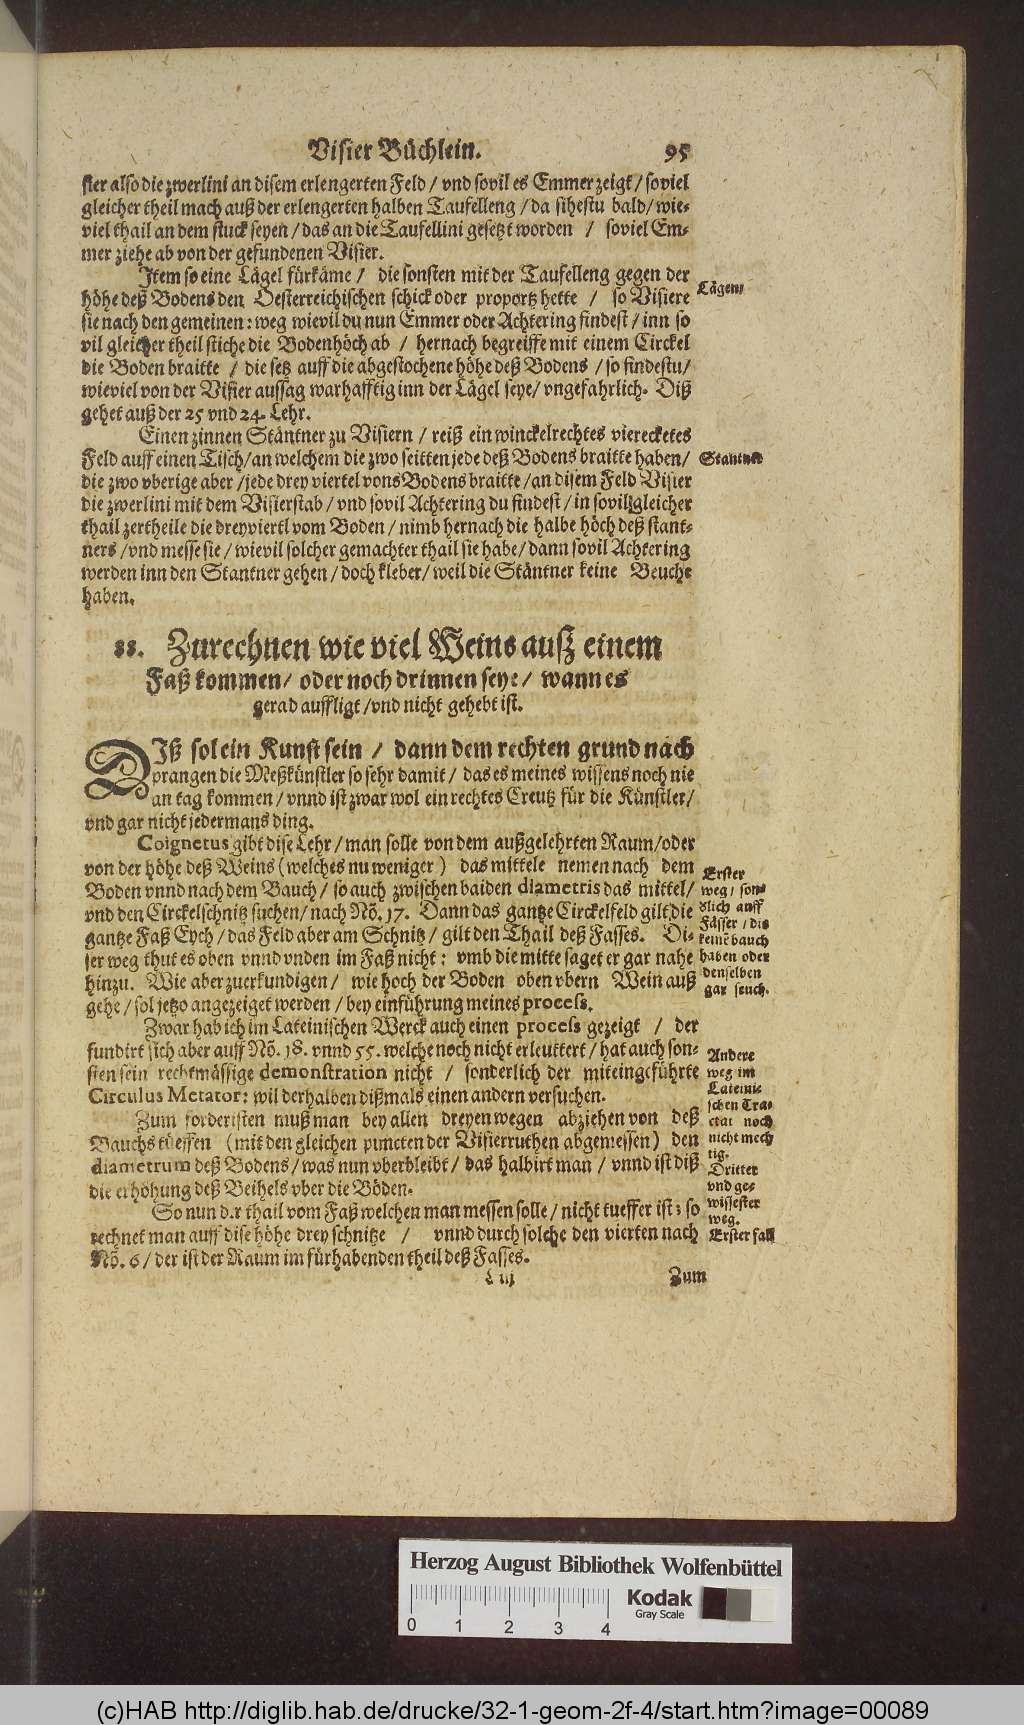 Visier Büchlein. 95
sier also die zwerlini an disem erlengerten Feld / vnd sovil es Emmer zeigt / so viel
gleicher theil mach auß der erlengerten halben Taufelleng / da sihestu bald / wie-
viel thail an dem stuck seyen / das an die Taufellini gesetzt worden / soviel Em-
mer ziehe ab von der gefundenen Visier.
Item so eine Lägel fürkäme / die sonsten mit der Taufelleng gegen der
höhe deß Bodens den Oesterreichischen schick oder proportz hette / so Visiere
Lägem
sie nach den gemeinen: weg wievil du nun Emmer oder Achtering findest / inn so
vil gleicher theil stiche die Bodenhöch ab / hernach begreiffe mit einem Circkel
die Boden braitte / die setz auff die abgestochene höhe deß Bodens / so findestu /
wieviel von der Visier aussag warhafftig inn der Lägel seye / vngefahrlich. Diß
gehet auß der 25 vnd 24. Lehr.
Einen zinnen Stäntner zu Visiern / reiß ein winckelrechtes vierecketes
Feld auff einen Tisch / an welchem die zwo seitten jede deß Bodens braitte haben /
Stantner
die zwo vberige aber / jede drey viertel vons Bodens braitte / an disem Feld Visier
die zwerlini mit dem Visierstab / vnd sovil Achtering du findest / in sovil gleicher
thail zertheile die dreyviertl vom Boden / nimb hernach die halbe höch deß stant-
ners / vnd messe sie / wievil solcher gemachter thail sie habe / dann sovil Achtering
werden inn den Stantner gehen / doch kleber / weil die Stäntner keine Beuche
haben.
88. Zurechnen wie viel Weins außz einem
Faß kommen / oder noch drinnen seye / wann es
gerad auffligt / vnd nicht gehebt ist.
DIß sol ein Kunst sein / dann dem rechten grund nach
prangen die Meßkünstler so sehr damit / das es meines wissens noch nie
an tag kommen / vnnd ist zwar wol ein rechtes Creutz für die Künstler /
vnd gar nicht jedermans ding.
Coignetus gibt dise Lehr / man solle von dem außgelehrten Raum / oder
von der höhe deß Weins (welches nu weniger) das mittele nemen nach dem
Boden vnnd nach dem Bauch / so auch zwischen baiden diametris das mittel /
vnd den Circkelschnitz suchen / nach Nõ. 17. Dann das gantze Circkelfeld gilt die
gantze Faß Eych / das Feld aber am Schnitz / gilt den Thail deß Fasses. Di-
ser weg thut es oben vnnd vnden im Faß nicht: vmb die mitte saget er gar nahe
hinzu. Wie aber zuerkundigen / wie hoch der Boden oben vbern Wein auß
gehe / sol jetzo angezeiget werden / bey einführung meines process.
Erster
weg / son-
dlich auff
Fässer / die
keinẽ bauch
haben oder
denselben
gar seuch.
Zwar hab ich im Lateinischen Werck auch einen process gezeigt / der
fundirt sich aber auff Nõ. 18. vnnd 55. welche noch nicht erleuttert / hat auch son-
sten sein rechtmässige demonstration nicht / sonderlich der miteingeführte
Circulus Metator: wil derhalben dißmals einen andern versuchen.
Andere
weg im
Lateini-
schen Tra-
ctat noch
nicht mech
tig.
Zum fordersten muß man bey allen dreyen wegen abziehen von deß
Bauchs tieffen (mit den gleichen puncten der Visierruthen abgemessen) den
diametrum deß Bodens / was nun vberbleibt / das halbirt man / vnnd ist diß
die erhöhung deß Beihels vber die Böden.
Dritter
vnd ge-
wissester
weg.
So nun der thail vom Faß welchen man messen solle / nicht tueffer ist: so
rechnet man auff dise höhe drey schnitze / vnnd durch solche den vierten nach
Nõ. 6 / der ist der Raum im fürhabenden theil deß Fasses.
Erster fall
L iij Zum
Herzog August Bibliothek Wolfenbüttel
Kodak
Gray Scale
0 1 2 3 4
(c)HAB http://diglib.hab.de/drucke/32-1-geom-2f-4/start.htm?image=00089